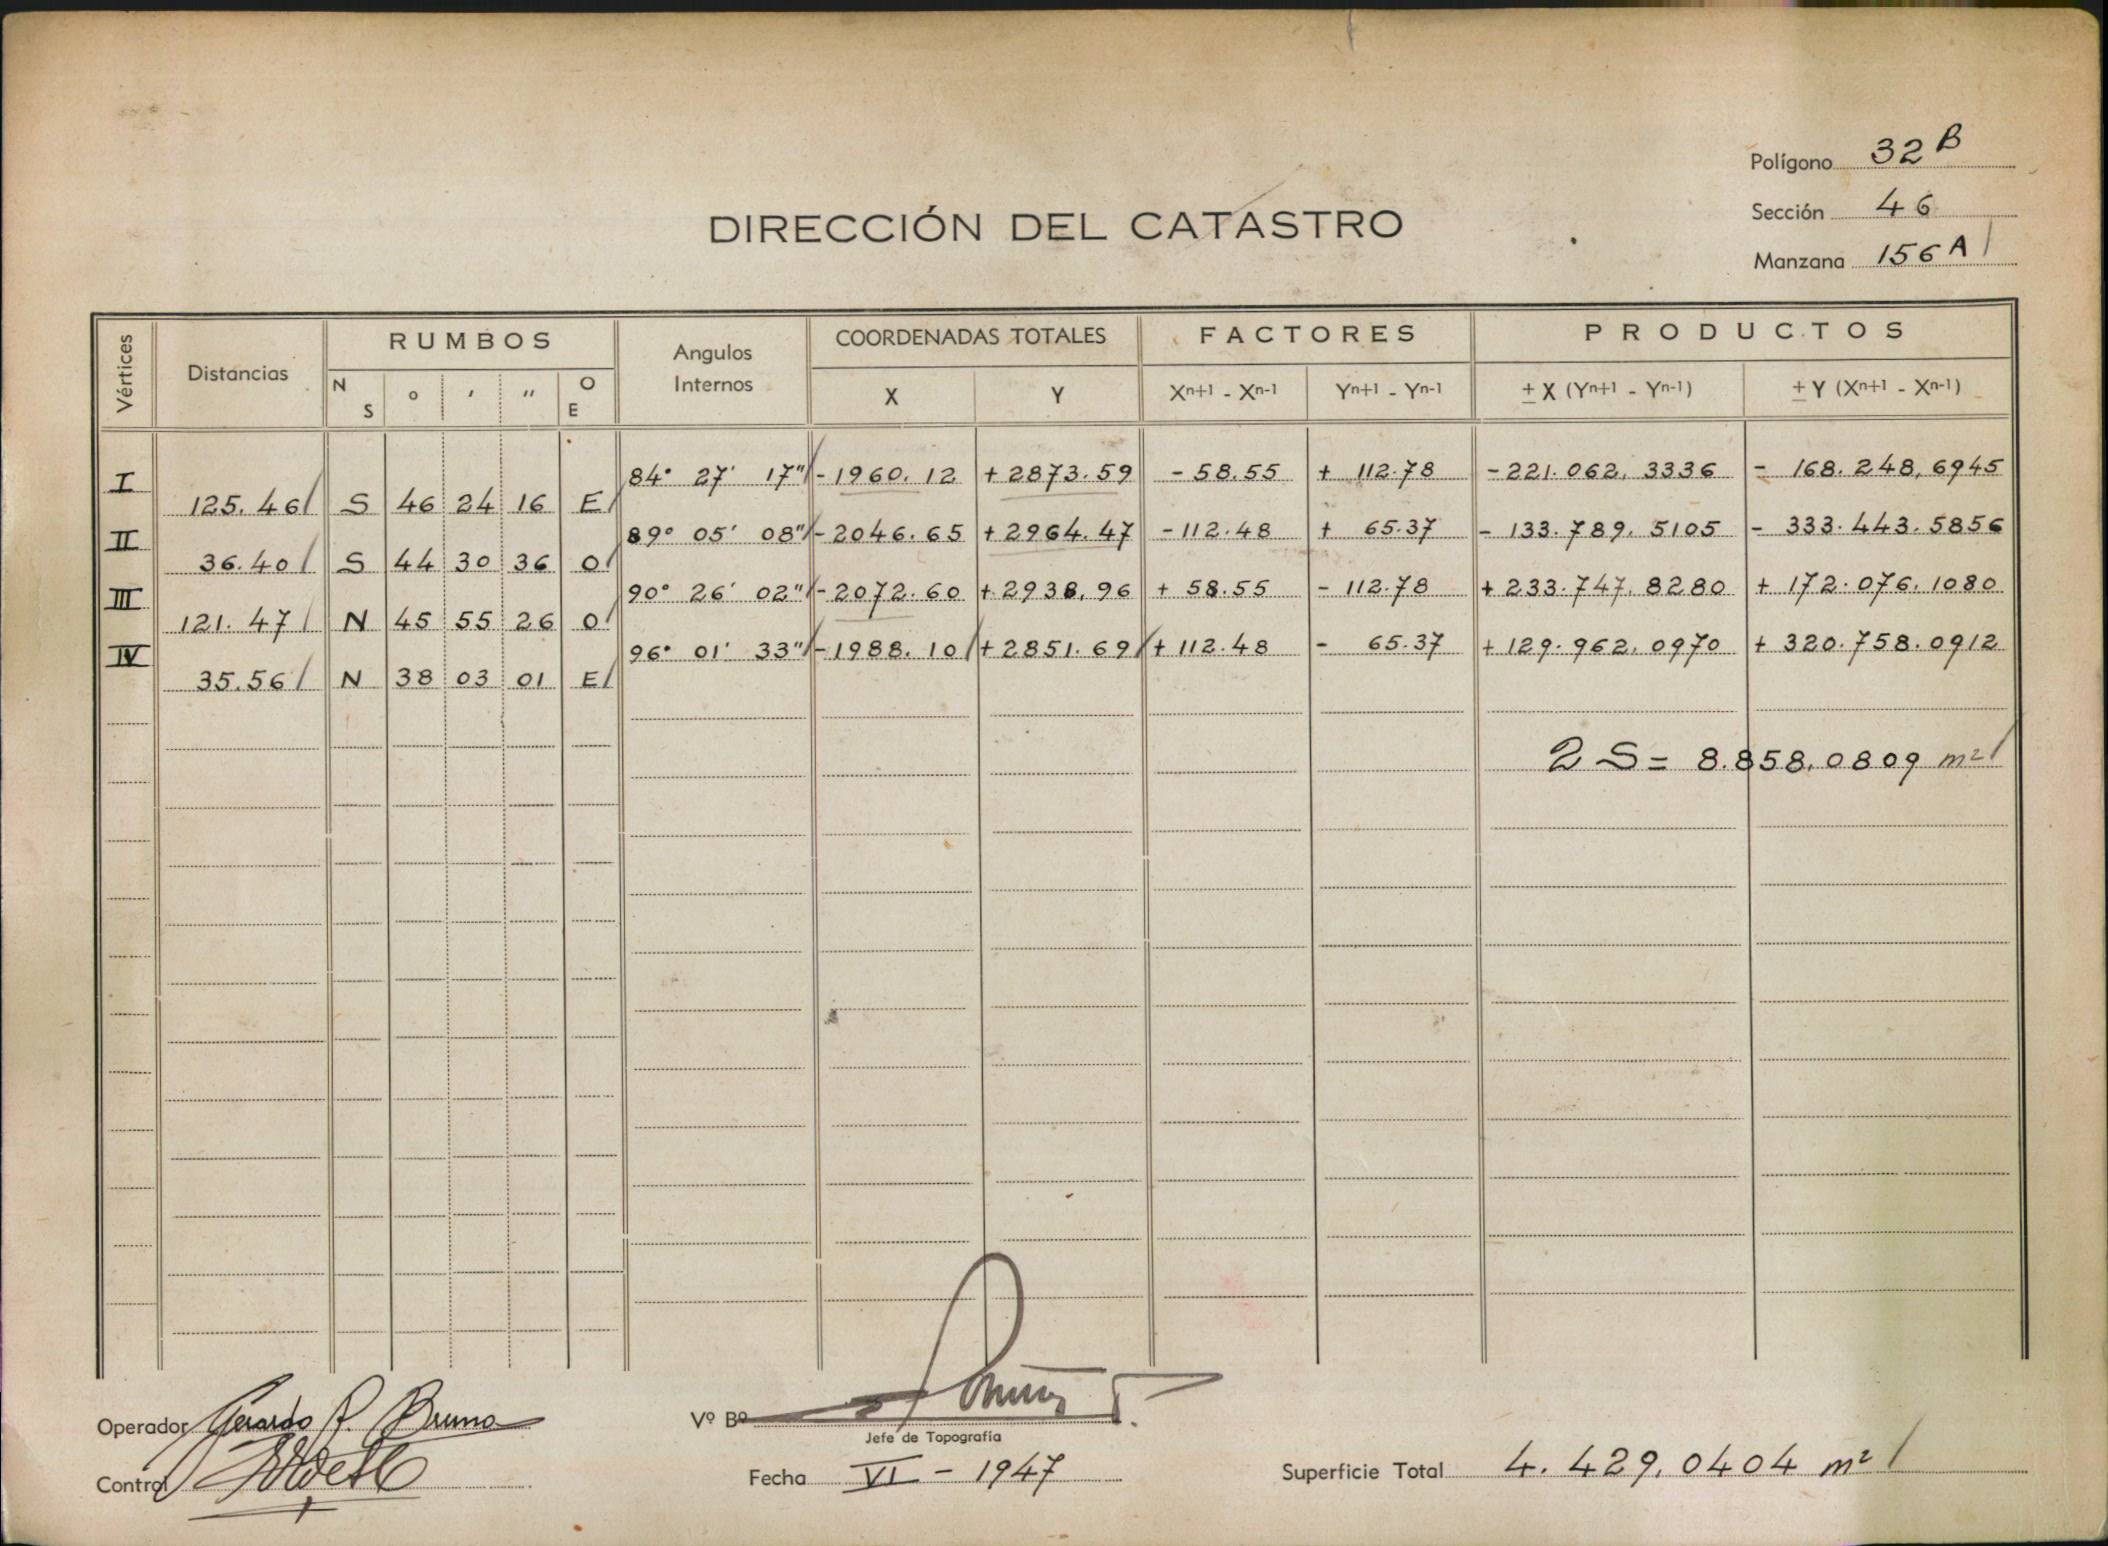 Polígono 32 B
Sección 46
Manzana 156 A
DIRECCIÓN DEL CATASTRO
Vértices Distancias RUMBOS Angulos Internos COORDENADAS TOTALES FACTORES PRODUCTOS
N S ° ' " O E X Y Xn+1 - Xn-1 Yn+1 - Yn-1 ± X (Yn+1 - Yn-1) ± Y (Xn+1 - Xn-1)
I 84° 27' 17" -1960.12 +2873.59 -58.55 + 112.78 -221.062,3336 - 168.248,6945
125.46 S 46 24 16 E
II 89° 05' 08" -2046.65 +2964.47 -112.48 + 65.37 - 133.789.5105 - 333.443.5856
36.40 S 44 30 36 O
III 90° 26' 02" -2072.60 +2938,96 + 58.55 - 112.78 + 233.747.8280 + 172.076.1080
121.47 N 45 55 26 O
IV 96° 01' 33" -1988.10 +2851.69 + 112.48 - 65.37 + 129.962,0970 + 320.758.0912
35.56 N 38 03 01 E
2 S = 8.858,0809 m²
Operador Gerardo P. Bruno
Control
Vº Bº
Jefe de Topografía
Fecha VI - 1947
Superficie Total 4.429,0404 m²